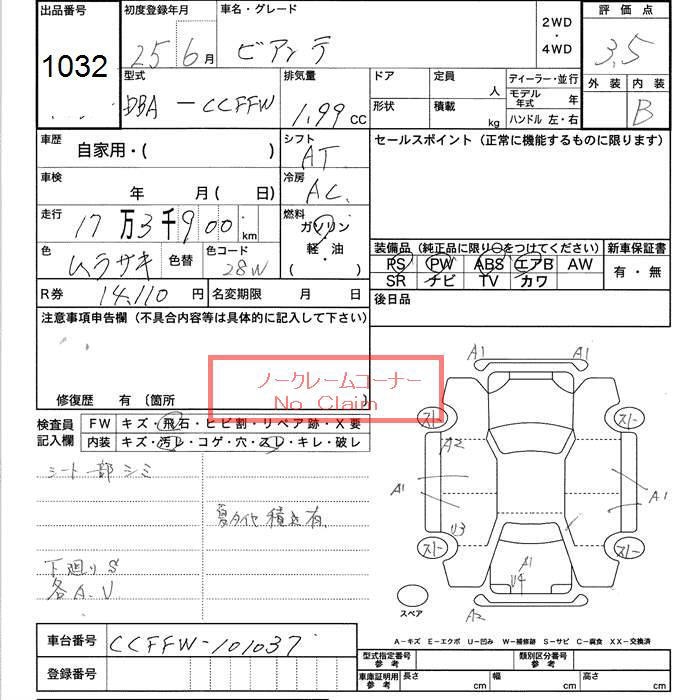 出品番号
1032
初度登録年月
25 6月
車名・グレード
ビアンテ
2WD
・
4WD
評価点
3.5
型式
DBA-CCFFW
排気量
1.99 CC
ドア
定員
人
形状
積載
kg
ディーラー・並行
モデル年式 年
ハンドル 左・右
外装 内装
B
車歴
自家用・( )
シフト
AT
セールスポイント (正常に機能するものに限ります)
車検
年 月 ( 日)
冷房
AC
走行
17万3千900km
燃料
ガソリン
軽・油
( )
色
ムラサキ
色替
色コード
28W
装備品 (純正品に限り○をつけてください) 新車保証書
PS PW ABS エアB AW
SR ナビ TV カワ
有・無
R券 14,110円
名変期限 月 日
後日品
注意事項申告欄 (不具合内容等は具体的に記入して下さい)
ノークレームコーナー
No Claim
修復歴 有 〔箇所
検査員記入欄
FW キズ・飛石・ヒビ割・リペア跡・X要
内装 キズ・汚レ・コゲ・穴・スレ・キレ・破レ
シート一部シミ
夏タイヤ積込有
下廻りS
各A.U
A1 A1
スト スト
A2
A1 A1
U3
スト スト
A1
U4
スペア
A2
A-キズ E-エクボ U-凹み W-補修跡 S-サビ C-腐食 XX-交換済
車台番号 CCFFW-101037
登録番号
型式指定番号 参考
類別区分番号 参考
車庫証明用 参考
長さ cm 幅 cm 高さ cm